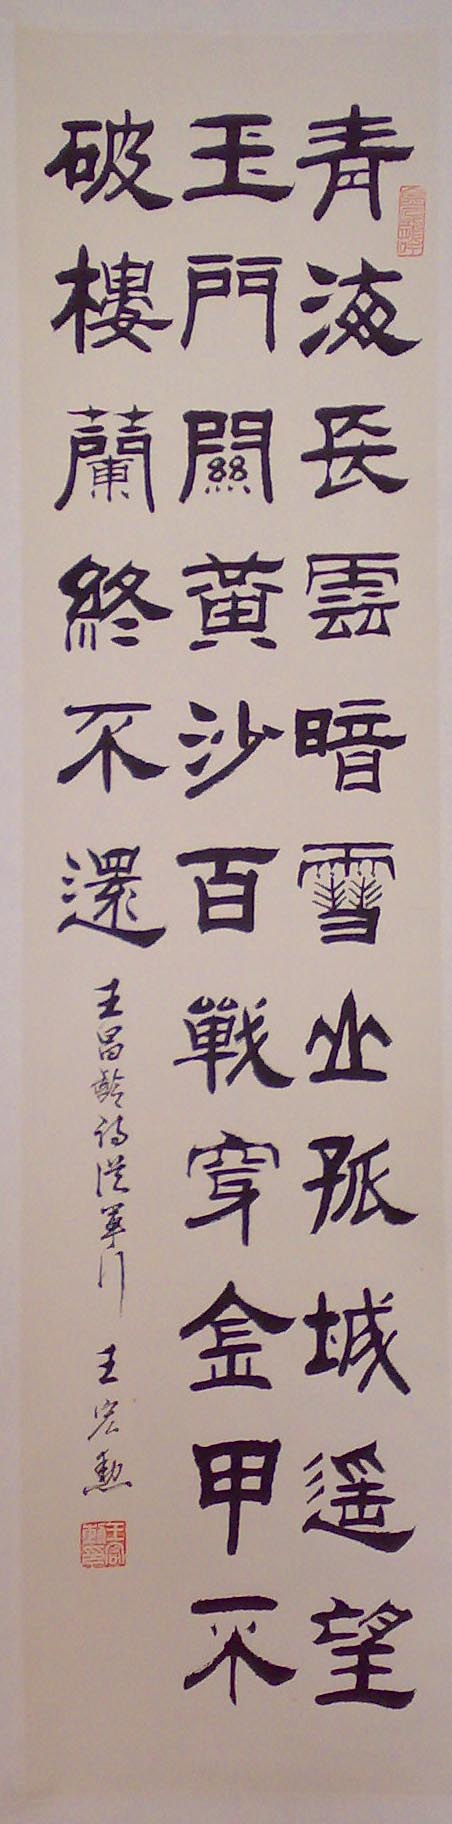 青海長雲暗雪山孤城遥望
玉門關黃沙百戰穿金甲不
破樓蘭終不還
王昌齡詩從軍行 王宏勳